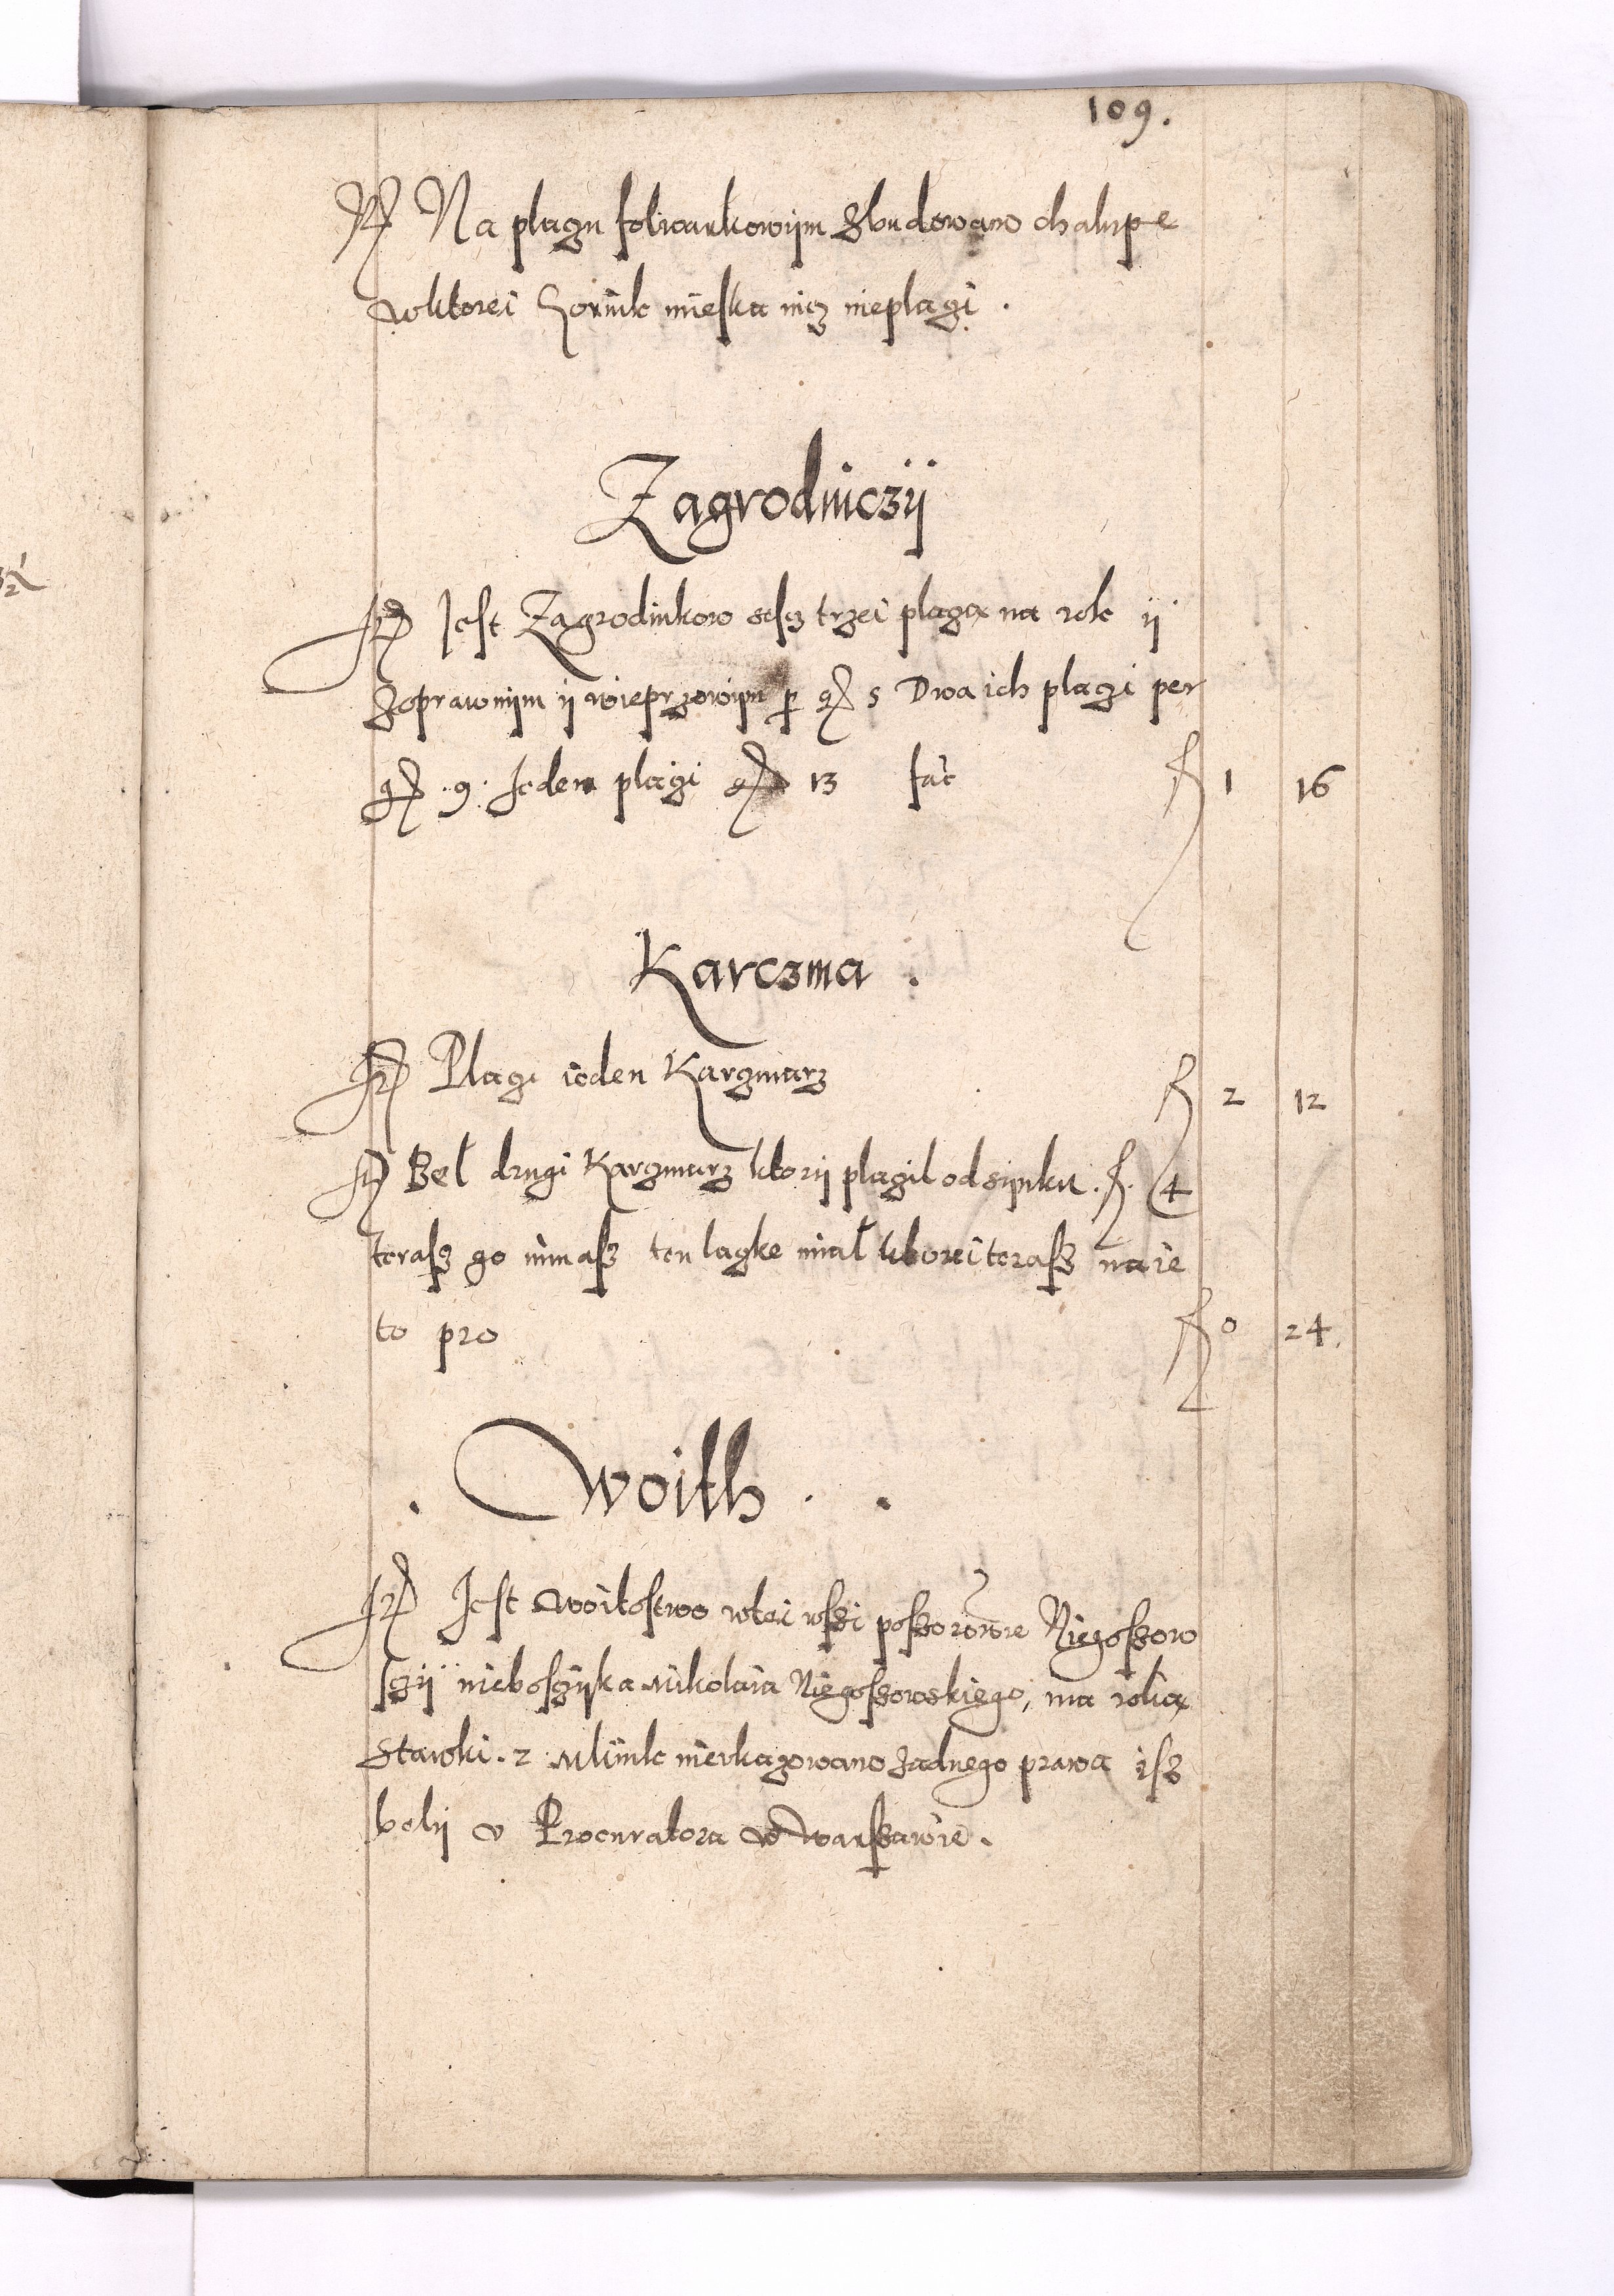 109.
It Na placzu folwarkowym zbudowano chalupe
wktorei Hornik mieska nicz nieplaczi.
Zagrodniczy
It Jest Zagrodnikow sescz trzei placzą na rok y
zoprawnym y wieprzowym p gr 5 Dwa ich placzi per
gr 9. Jeden placzi gr 13 fac f 1 16
Karczma.
It Placzi ieden Karczmarz f 2 12
It Bel drugi Karczmarz ktory placzil od synku. f. 4
terasz go nimasz ten lączke mial ktorei terasz naie
to pro f 0 24.
Woith.
It Jest woitostwo wtei wszi possorowie Niegoszow
sczy nieboszczyka Mikolaia Niegoszowskiego, ma rolią
Stawki. 2 Mlinik nieukazowano zadnego prawa isz
bely v Procuratora w Warszawie.